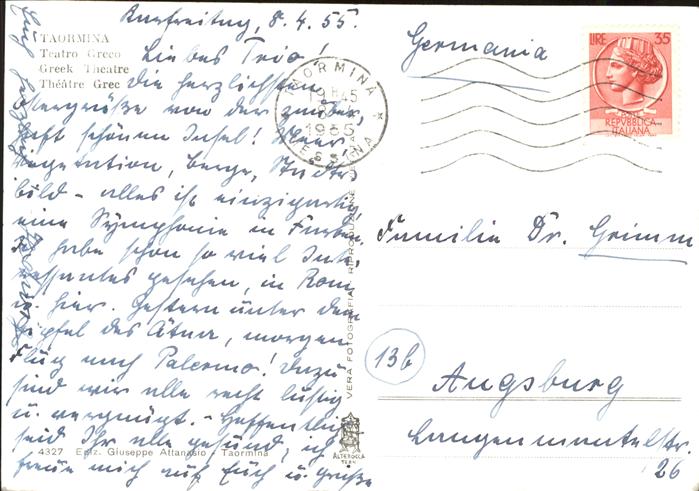 Karfreitag, 8.4.55.
TAORMINA
Teatro Greco
Greek Theatre
Théâtre Grec
Liebes Trio!
Die herzlichsten
Ostergrüße von der zauber-
haft schönen Insel! Meer,
Vegetation, Berge, Städte-
bild - alles ist einzigartig,
eine Symphonie in Farben.
Ich habe schon so viel Inte-
ressantes gesehen, in Rom
u. hier. Gestern unter dem
Gipfel des Ätna, morgen
Flug nach Palermo! Dazu
sind wir alle recht lustig
u. vergnügt. - Hoffentlich
seid Ihr alle gesund, ich
freue mich auf Euch u. grüße
Euch
4327 Ediz. Giuseppe Attanasio - Taormina
VERA FOTOGRAFIA - RIPRODUZIONE
ALTEROCCA
TERNI
TAORMINA
1955
MESSINA
LIRE 35
REPVBBLICA
ITALIANA
Germania
Familie Dr. Grimm
13b
Augsburg
Langenmantelstr.
26